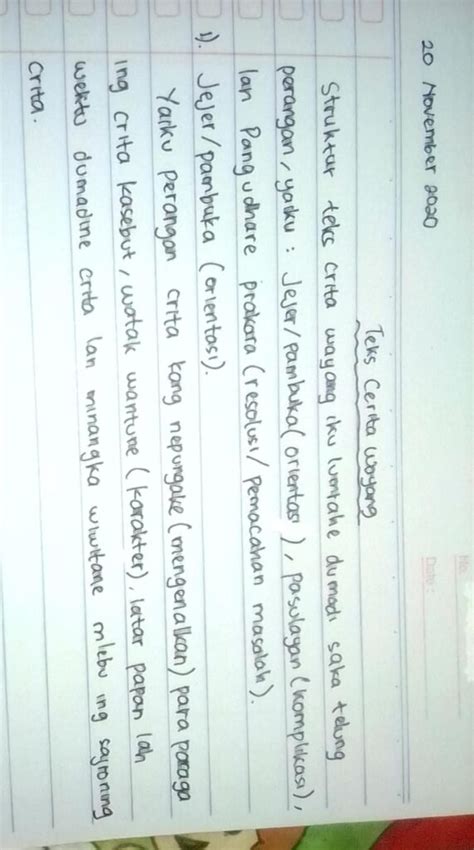 No:
Date:
20 November 2020
Teks Cerita Wayang
Struktur teks crita wayang iku lumrahe dumadi saka telung
perangan, yaiku : Jejer/pambuka (orientasi), pasulayan (komplikasi),
lan Pangudhare prakara (resolusi/ pemacahan masalah).
1). Jejer/pambuka (orientasi).
Yaiku perangan crita kang nepungake (mengenalkan) para paraga
ing crita kasebut, watak wantune (karakter), latar papan lah
wektu dumadine crita lan minangka wiwitane mlebu ing sajroning
crita.